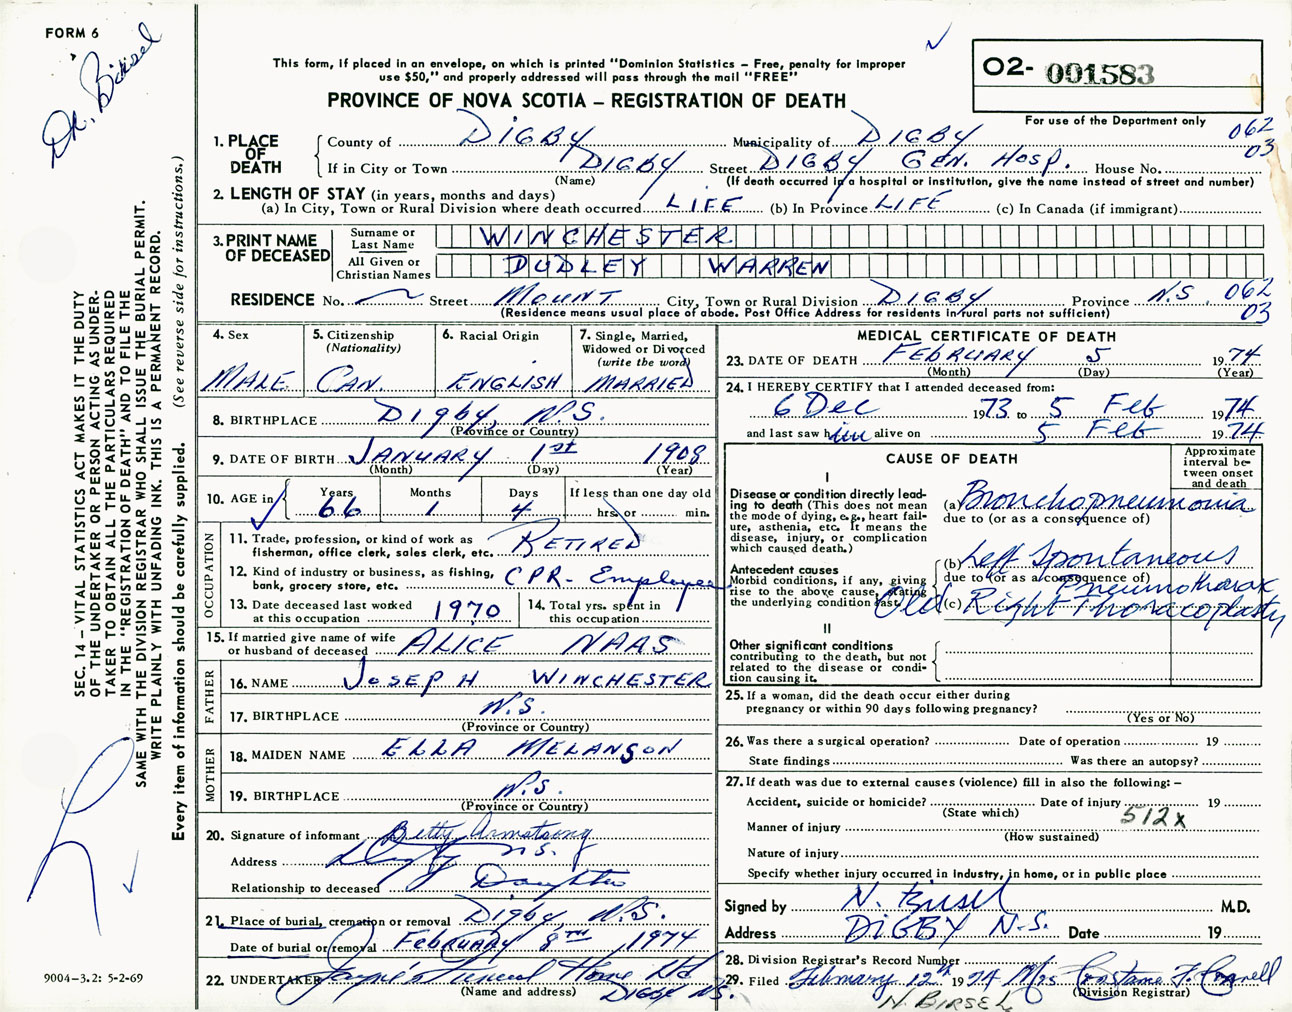 FORM 6
Dr. Birsel
This form, if placed in an envelope, on which is printed "Dominion Statistics – Free, penalty for improper
use $50," and properly addressed will pass through the mail "FREE"
PROVINCE OF NOVA SCOTIA – REGISTRATION OF DEATH
O2- 001583
For use of the Department only
062
03
1. PLACE OF DEATH
County of DIGBY Municipality of DIGBY
If in City or Town DIGBY Street DIGBY GEN. HOSP. House No.
(Name) (If death occurred in a hospital or institution, give the name instead of street and number)
2. LENGTH OF STAY (in years, months and days)
(a) In City, Town or Rural Division where death occurred LIFE (b) In Province LIFE (c) In Canada (if immigrant)
3. PRINT NAME OF DECEASED
Surname or Last Name WINCHESTER
All Given or Christian Names DUDLEY WARREN
RESIDENCE No. — Street MOUNT City, Town or Rural Division DIGBY Province N.S. 062
(Residence means usual place of abode. Post Office Address for residents in rural parts not sufficient) 03
SEC. 14 – VITAL STATISTICS ACT MAKES IT THE DUTY
OF THE UNDERTAKER OR PERSON ACTING AS UNDER-
TAKER TO OBTAIN ALL THE PARTICULARS REQUIRED
IN THE "REGISTRATION OF DEATH" AND TO FILE THE
SAME WITH THE DIVISION REGISTRAR WHO SHALL ISSUE THE BURIAL PERMIT.
WRITE PLAINLY WITH UNFADING INK. THIS IS A PERMANENT RECORD.
Every item of information should be carefully supplied. (See reverse side for instructions.)
4. Sex
MALE
5. Citizenship
(Nationality)
CAN.
6. Racial Origin
ENGLISH
7. Single, Married,
Widowed or Divorced
(write the word)
MARRIED
8. BIRTHPLACE DIGBY, N.S.
(Province or Country)
9. DATE OF BIRTH JANUARY 1st 1908
(Month) (Day) (Year)
10. AGE in Years 66 Months 1 Days 4 If less than one day old
hrs. or min.
OCCUPATION
11. Trade, profession, or kind of work as
fisherman, office clerk, sales clerk, etc. RETIRED
12. Kind of industry or business, as fishing,
bank, grocery store, etc. CPR- Employee
13. Date deceased last worked
at this occupation 1970
14. Total yrs. spent in
this occupation
15. If married give name of wife
or husband of deceased ALICE NAAS
FATHER
16. NAME JOSEPH WINCHESTER
17. BIRTHPLACE N.S.
(Province or Country)
MOTHER
18. MAIDEN NAME ELLA MELANSON
19. BIRTHPLACE N.S.
(Province or Country)
20. Signature of informant Betty Armstrong
Address Digby N.S.
Relationship to deceased Daughter
21. Place of burial, cremation or removal DIGBY, N.S.
Date of burial or removal FEBRUARY 8TH 1974
22. UNDERTAKER Jayne's Funeral Home Ltd
(Name and address) DIGBY NS.
9004–3.2: 5-2-69
MEDICAL CERTIFICATE OF DEATH
23. DATE OF DEATH FEBRUARY 5 1974
(Month) (Day) (Year)
24. I HEREBY CERTIFY that I attended deceased from:
6 Dec 1973 to 5 Feb 1974
and last saw him alive on 5 Feb 1974
CAUSE OF DEATH
Approximate
interval be-
tween onset
and death
I
Disease or condition directly lead-
ing to death (This does not mean
the mode of dying, e.g., heart fail-
ure, asthenia, etc. It means the
disease, injury, or complication
which caused death.)
(a) Bronchopneumonia
due to (or as a consequence of)
Antecedent causes
Morbid conditions, if any, giving
rise to the above cause, stating
the underlying condition last.
(b) Left Spontaneous
due to (or as a consequence of)
Pneumothorax
(c) Old Right Thoracoplasty
II
Other significant conditions
contributing to the death, but not
related to the disease or condi-
tion causing it.
25. If a woman, did the death occur either during
pregnancy or within 90 days following pregnancy?
(Yes or No)
26. Was there a surgical operation? Date of operation 19
State findings Was there an autopsy?
27. If death was due to external causes (violence) fill in also the following: –
Accident, suicide or homicide? Date of injury 19
(State which) 512x
Manner of injury
(How sustained)
Nature of injury
Specify whether injury occurred in industry, in home, or in public place
Signed by N. Birsel M.D.
Address DIGBY N.S. Date 19
28. Division Registrar's Record Number
29. Filed February 12th 1974 Mrs Constance F. Connell
(Division Registrar)
N. BIRSEL